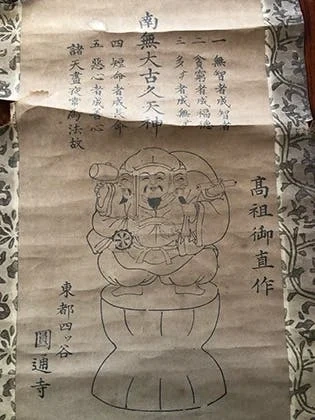 南無大古久天神
一 無智者成智者
二 貧窮者成福德
三 多 者成無
四 短命者成長命
五 惡心者成善心
諸天晝夜常為法故
高祖御直作
東都四ッ谷
圓通寺